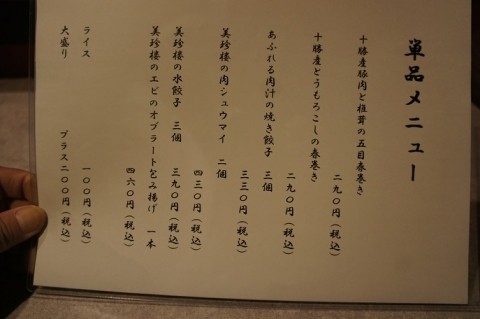 単品メニュー
十勝産豚肉と椎茸の五目春巻き
二九〇円（税込）
十勝産とうもろこしの春巻き
二九〇円（税込）
あふれる肉汁の焼き餃子　三個
三三〇円（税込）
美珍楼の肉シュウマイ　二個
四三〇円（税込）
美珍楼の水餃子　三個
三九〇円（税込）
美珍楼のエビのオブラート包み揚げ　一本
四六〇円（税込）
ライス　一〇〇円（税込）
大盛り　プラス二〇〇円（税込）